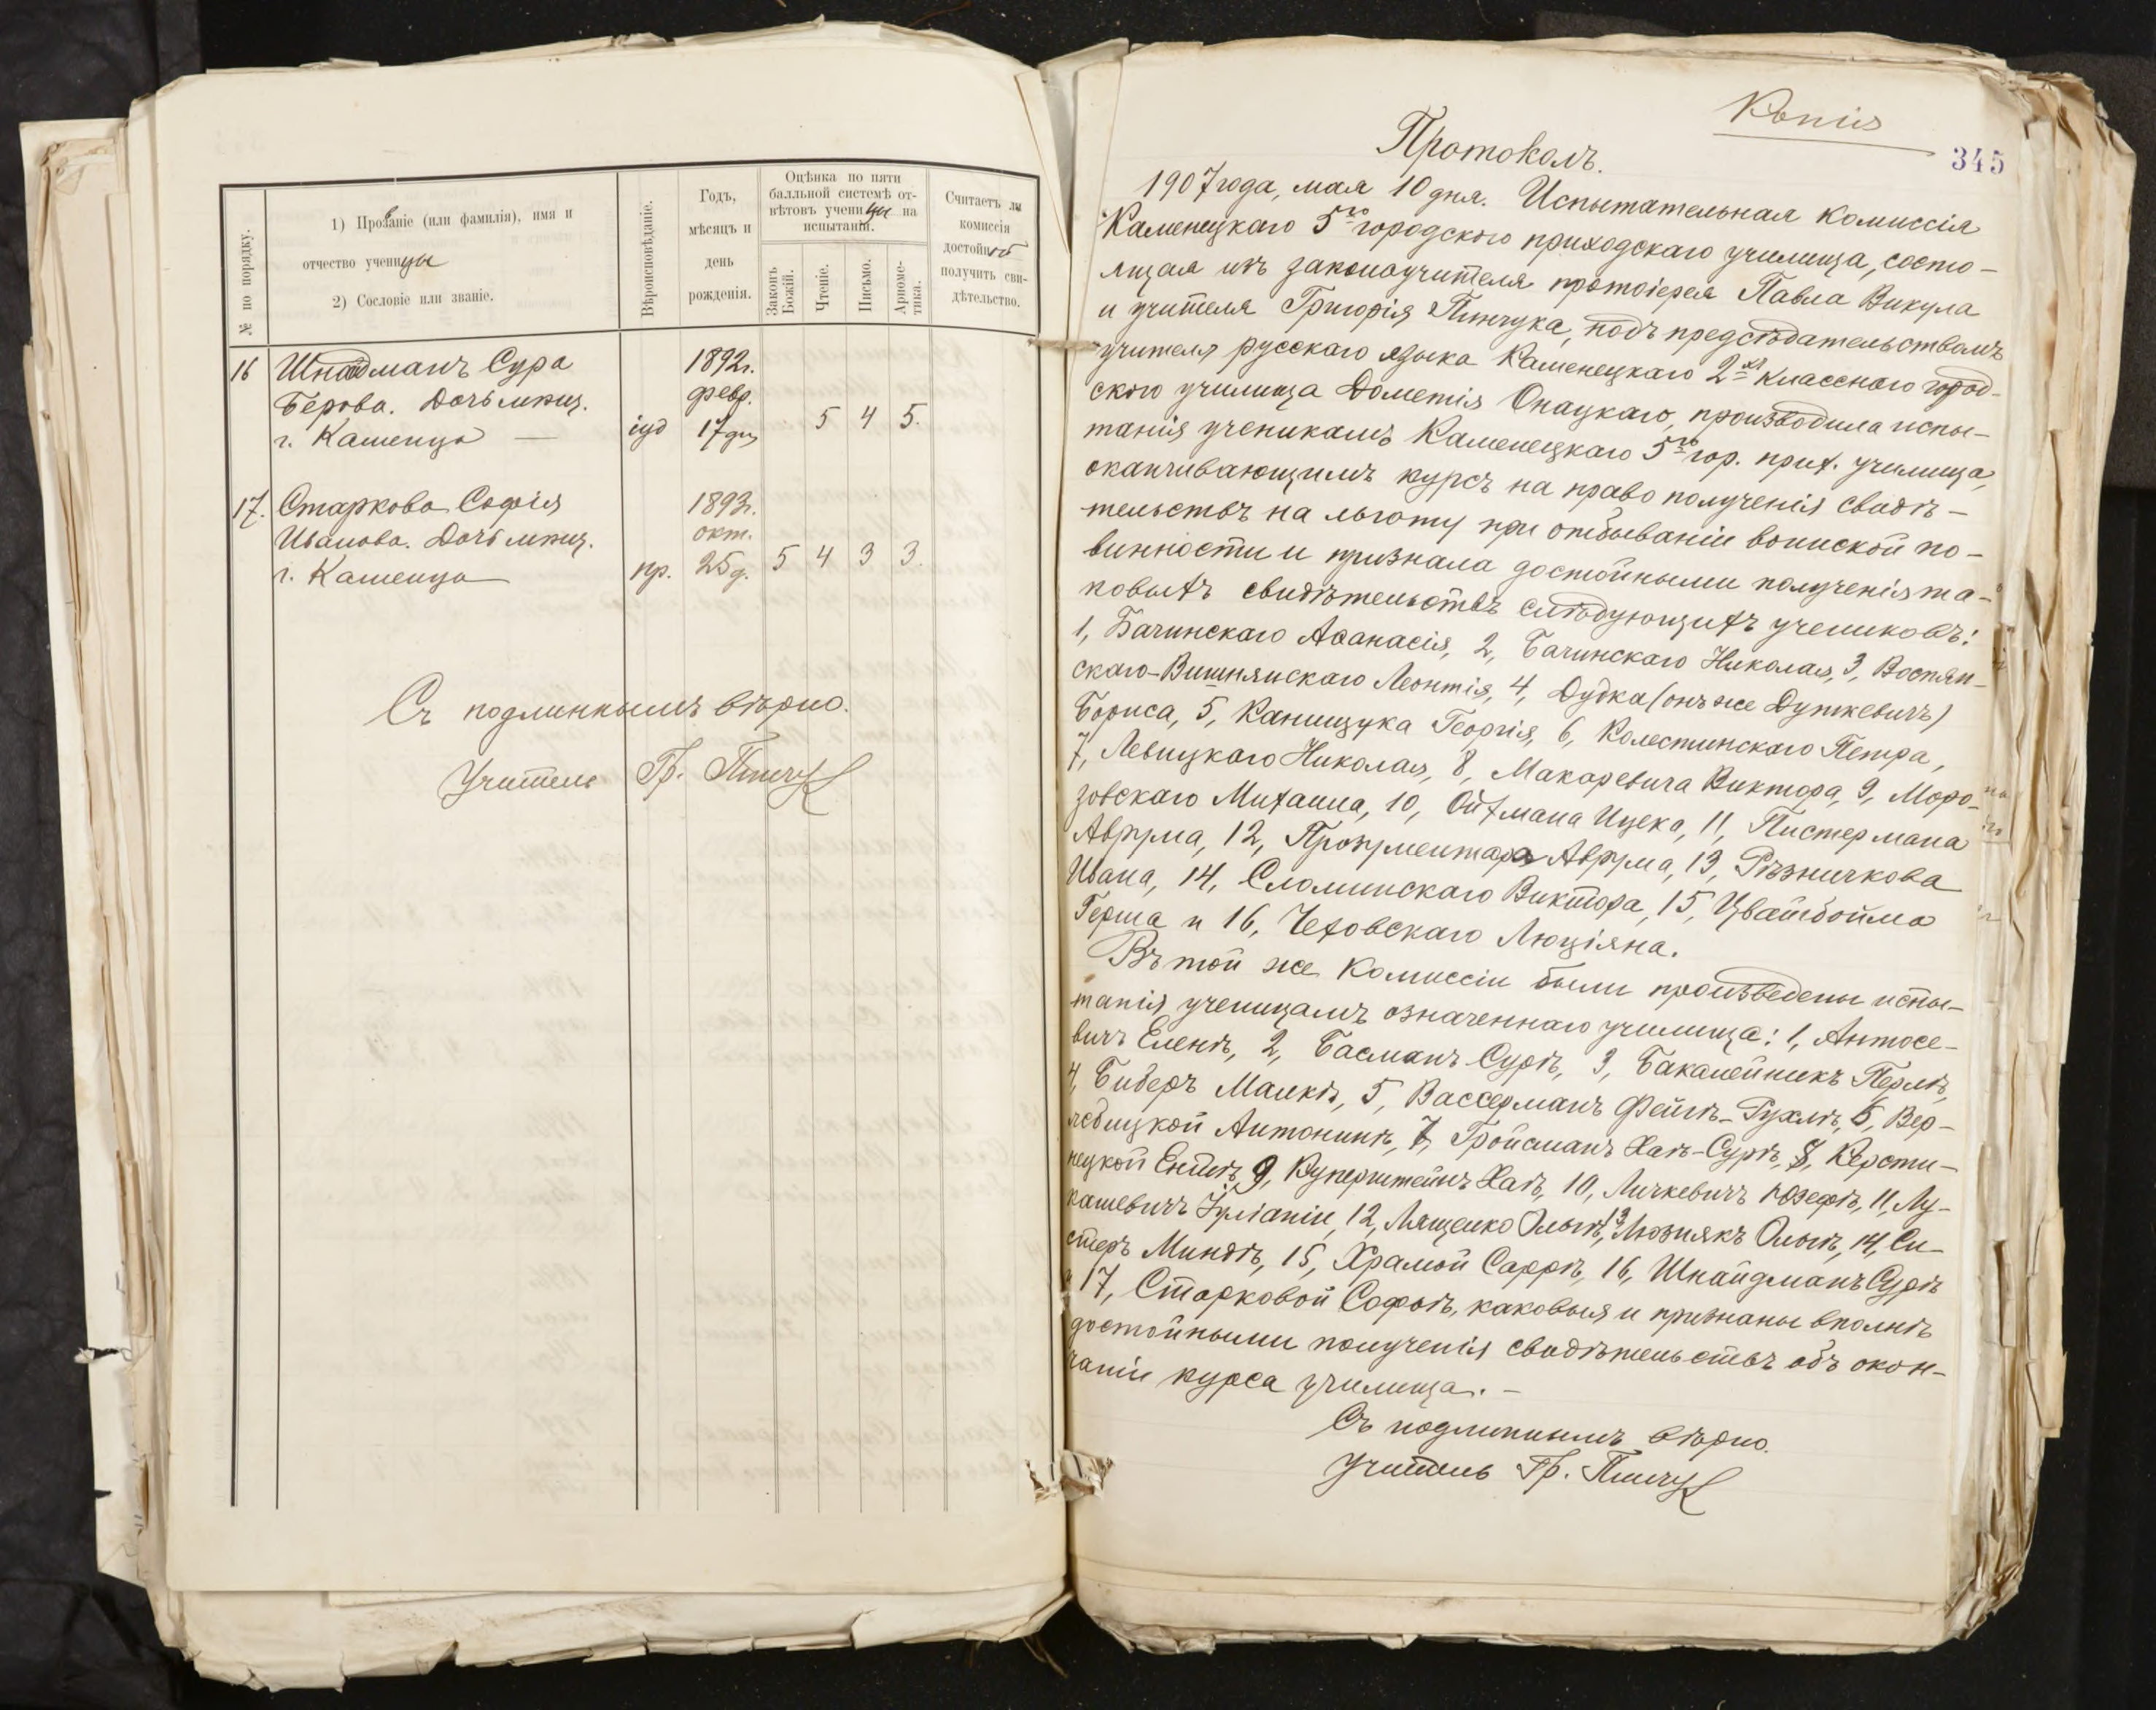 № по порядку.
1) Прозваніе (или фамилія), имя и
отчество ученицы
2) Сословіе или званіе.
Вѣроисповѣданіе.
Годъ,
мѣсяцъ и
день
рожденія.
Оцѣнка по пяти
балльной системѣ от-
вѣтовъ ученицы на
испытаніи.
Законъ Божій.
Чтеніе.
Письмо.
Ариѳме-тика.
Считаетъ ли
комиссія
достойной
получить сви-
дѣтельство.
16 Шнайдманъ Сура 1892г.
Берова. Дочь мѣщ. февр.
г. Каменца — іуд 17 дня 5 4 5.
17. Старкова Софія 1893г.
Иванова. Дочь мѣщ. окт.
г. Каменца пр. 25 д. 5 4 3 3.
Съ подлиннымъ вѣрно.
Учитель Гр. Пинчук
Копія
345
Протоколъ.
1907 года, мая 10 дня. Испытательная комиссія
Каменецкаго 5го городского приходскаго училища, состо-
ящая изъ законоучителя протоіерея Павла Викула
и учителя Григорія Пинчука, подъ предсѣдательствомъ
учителя русскаго языка Каменецкаго 2хъ класснаго город-
ского училища Дометія Опацкаго, производила испы-
танія ученикамъ Каменецкаго 5го гор. прих. училища,
оканчивающимъ курсъ на право полученія свидѣ-
тельствъ на льготу при отбываніи воинской по-
винности и признала достойными полученія та-
ковыхъ свидѣтельствъ слѣдующихъ учениковъ:
1, Бачинскаго Аѳанасія, 2, Бачинскаго Николая, 3, Воспян-
скаго-Вишнянскаго Леонтія, 4, Дудка (онъ же Дуткевичъ)
Бориса, 5, Канищука Георгія, 6, Колестинскаго Петра,
7, Левицкаго Николая, 8, Макаревича Виктора, 9, Моро-
зовскаго Михаила, 10, Ойхмана Ицека, 11, Пистермана
Аврума, 12, Прозументара Аврума, 13, Рѣзничкова
Ивана, 14, Сломинскаго Виктора, 15, Цвайгбойма
Герша и 16, Чеховскаго Люціяна.
Въ той же Комиссіи были произведены испы-
танія ученицамъ означеннаго училища: 1, Антосе-
вичъ Еленѣ, 2, Басманъ Сурѣ, 3, Бакалейникъ Перлѣ,
4, Биберъ Малкѣ, 5, Вассерманъ Фейгѣ-Рухлѣ, 6, Вер-
лецкой Антонинѣ, 7, Гройсманъ Хаѣ-Сурѣ, 8, Керсти-
нецкой Ентлѣ, 9, Куперштейнъ Хаѣ, 10, Личкевичъ Юзефѣ, 11, Лу-
кашевичъ Іуліаніи, 12, Лященко Ольгѣ, 13, Мозняккъ Ольгѣ, 14, Си-
стеръ Миндѣ, 15, Храмой Саррѣ, 16, Шнайдманъ Сурѣ
и 17, Старковой Софьѣ, каковыя и признаны вполнѣ
достойными полученія свидѣтельствъ объ окон-
чаніи курса училища. —
Съ подлиннымъ вѣрно.
Учитель Гр. Пинчук